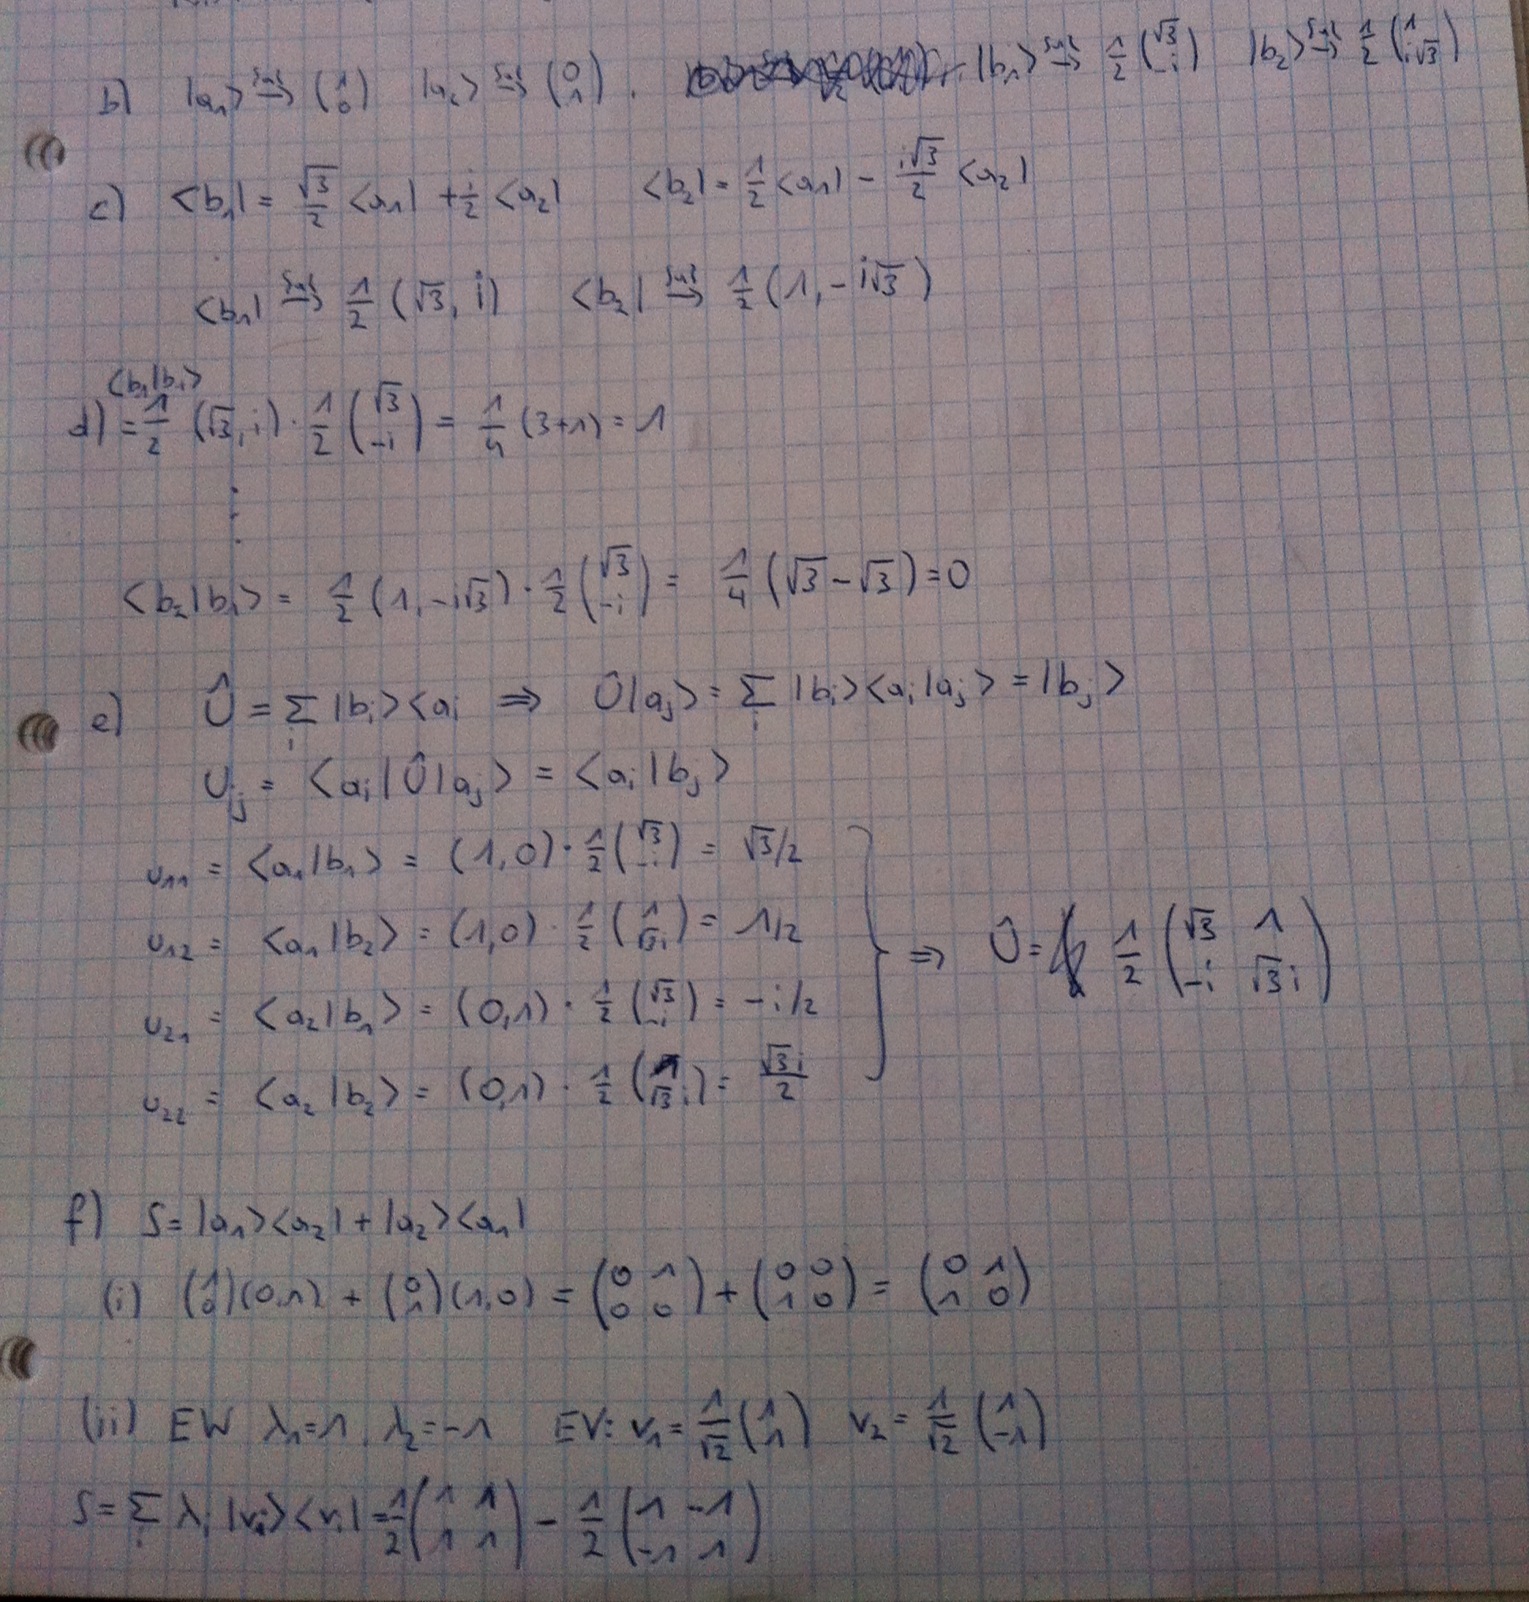 b) |a₁> {a_i}→ (1 0) |a₂> {a_i}→ (0 1) . |b₁> {a_i}→ 1/2 (√3 -i) |b₂> {a_i}→ 1/2 (1 i√3)
c) <b₁| = √3/2 <a₁| + i/2 <a₂| <b₂| = 1/2 <a₁| - i√3/2 <a₂|
<b₁| {a_i}→ 1/2 (√3, i) <b₂| {a_i}→ 1/2 (1, -i√3)
<b₁|b₁>
d) = 1/2 (√3, i) · 1/2 (√3 -i) = 1/4 (3+1) = 1
⋮
<b₂|b₁> = 1/2 (1, -i√3) · 1/2 (√3 -i) = 1/4 (√3 - √3) = 0
e) Û = Σ_i |b_i><a_i ⇒ Û|a_j> = Σ_i |b_i><a_i|a_j> = |b_j>
U_ij = <a_i|Û|a_j> = <a_i|b_j>
u₁₁ = <a₁|b₁> = (1,0) · 1/2 (√3 -i) = √3/2
u₁₂ = <a₁|b₂> = (1,0) · 1/2 (1 √3i) = 1/2
⇒ Û = 1/2 (√3 1 -i √3i)
u₂₁ = <a₂|b₁> = (0,1) · 1/2 (√3 -i) = -i/2
u₂₂ = <a₂|b₂> = (0,1) · 1/2 (1 √3i) = √3i/2
f) S = |a₁><a₂| + |a₂><a₁|
(i) (1 0)(0,1) + (0 1)(1,0) = (0 1 0 0) + (0 0 1 0) = (0 1 1 0)
(ii) EW λ₁=1, λ₂=-1 EV: v₁ = 1/√2 (1 1) v₂ = 1/√2 (1 -1)
S = Σ_i λ_i |v_i><v_i| = 1/2 (1 1 1 1) - 1/2 (1 -1 -1 1)